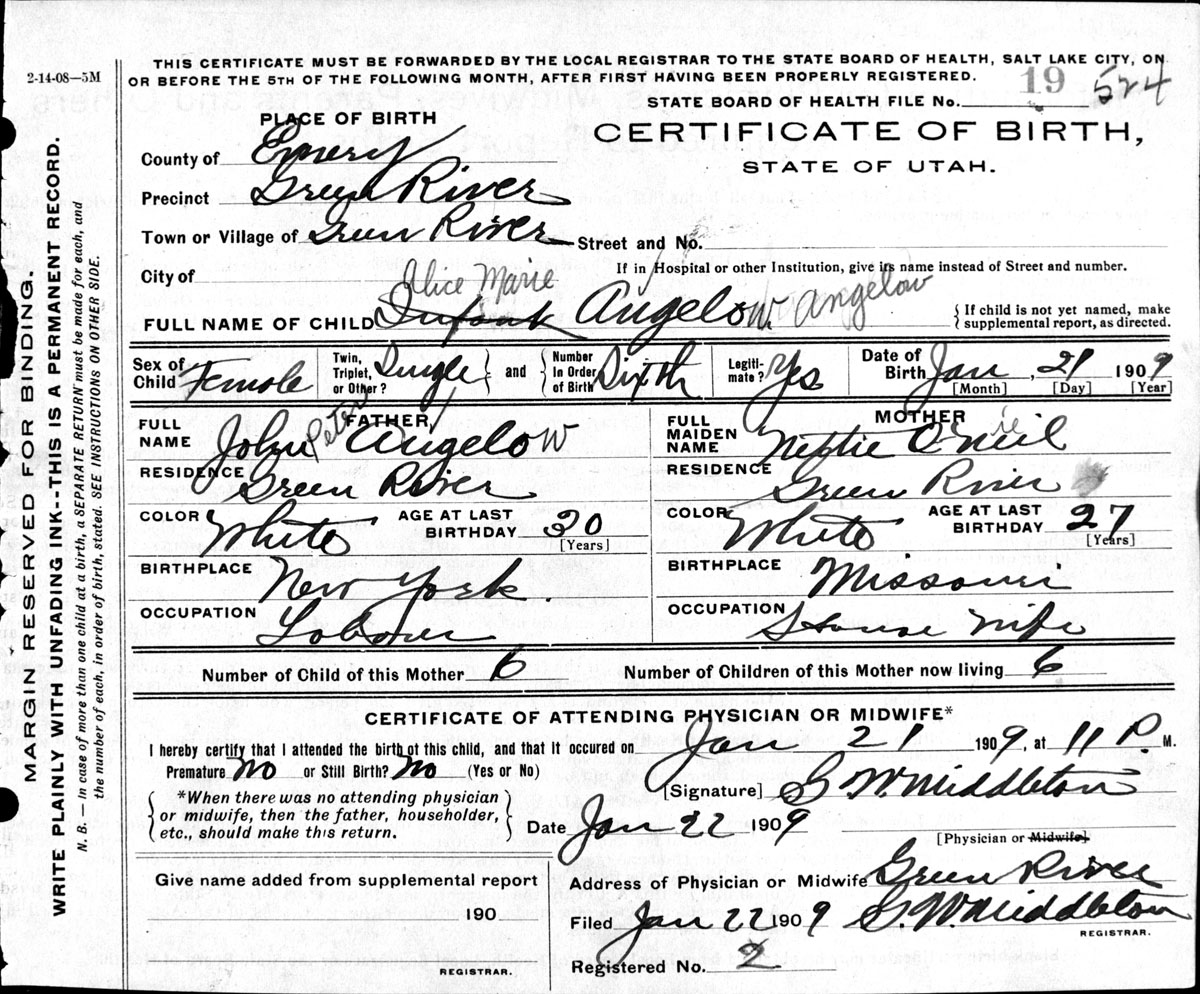 2-14-08—5M
THIS CERTIFICATE MUST BE FORWARDED BY THE LOCAL REGISTRAR TO THE STATE BOARD OF HEALTH, SALT LAKE CITY, ON
OR BEFORE THE 5TH OF THE FOLLOWING MONTH, AFTER FIRST HAVING BEEN PROPERLY REGISTERED.
STATE BOARD OF HEALTH FILE No. 19 524
PLACE OF BIRTH
CERTIFICATE OF BIRTH,
STATE OF UTAH.
County of Emery
Precinct Green River
Town or Village of Green River Street and No.
City of
If in Hospital or other Institution, give its name instead of Street and number.
Alice Marie
FULL NAME OF CHILD Infant Angelow Angelow
{ If child is not yet named, make
supplemental report, as directed.
Sex of Child Female
Twin, Triplet, or Other? Single } and { Number In Order of Birth Sixth
Legitimate? Yes
Date of Birth Jan, 21 1909
[Month] [Day] [Year]
FATHER
FULL NAME John Peter Angelow
RESIDENCE Green River
COLOR White AGE AT LAST BIRTHDAY 30
[Years]
BIRTHPLACE New York.
OCCUPATION Laborer
MOTHER
FULL MAIDEN NAME Nettie O'Neil
RESIDENCE Green River
COLOR White AGE AT LAST BIRTHDAY 27
[Years]
BIRTHPLACE Missouri
OCCUPATION House Wife
Number of Child of this Mother 6 Number of Children of this Mother now living 6
CERTIFICATE OF ATTENDING PHYSICIAN OR MIDWIFE*
I hereby certify that I attended the birth of this child, and that it occured on Jan 21 1909, at 11 P. M.
Premature No or Still Birth? No (Yes or No)
{ *When there was no attending physician
or midwife, then the father, householder,
etc., should make this return. }
[Signature] G W Middleton
Date Jan 22 1909
[Physician or Midwife]
Give name added from supplemental report
190
REGISTRAR.
Address of Physician or Midwife Green River
Filed Jan 22 1909 G. W. Middleton
REGISTRAR.
Registered No. 2
MARGIN RESERVED FOR BINDING.
WRITE PLAINLY WITH UNFADING INK--THIS IS A PERMANENT RECORD.
N. B. — In case of more than one child at a birth, a SEPARATE RETURN must be made for each, and
the number of each, in order of birth, stated. SEE INSTRUCTIONS ON OTHER SIDE.